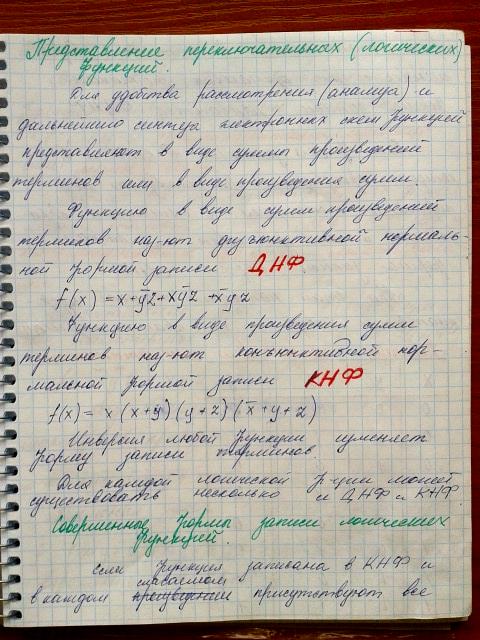 Представление переключательных (логических)
функций.
Для удобства рассмотрения (анализа) и
дальнейшего синтеза электронных схем функций
представляют в виде суммы произведений
терминов или в виде произведения сумм.
Функцию в виде сумм произведений
терминов наз-ют дизъюнктивной нормаль-
ной формой записи ДНФ.
f(x) = x + y̅z + xy̅z̅ + x̅yz
Функцию в виде произведения сумм
терминов наз-ют конъюнктивной нор-
мальной формой записи КНФ
f(x) = x (x+y̅) (y+z) (x̅+y+z)
Инверсия любой функции изменяет
форму записи терминов.
Для каждой логической ф-ции может
существовать несколько и ДНФ и КНФ.
Совершенные формы записи логических
функций.
если функция записана в КНФ и
слагаемом
в каждом произведении присутствуют все